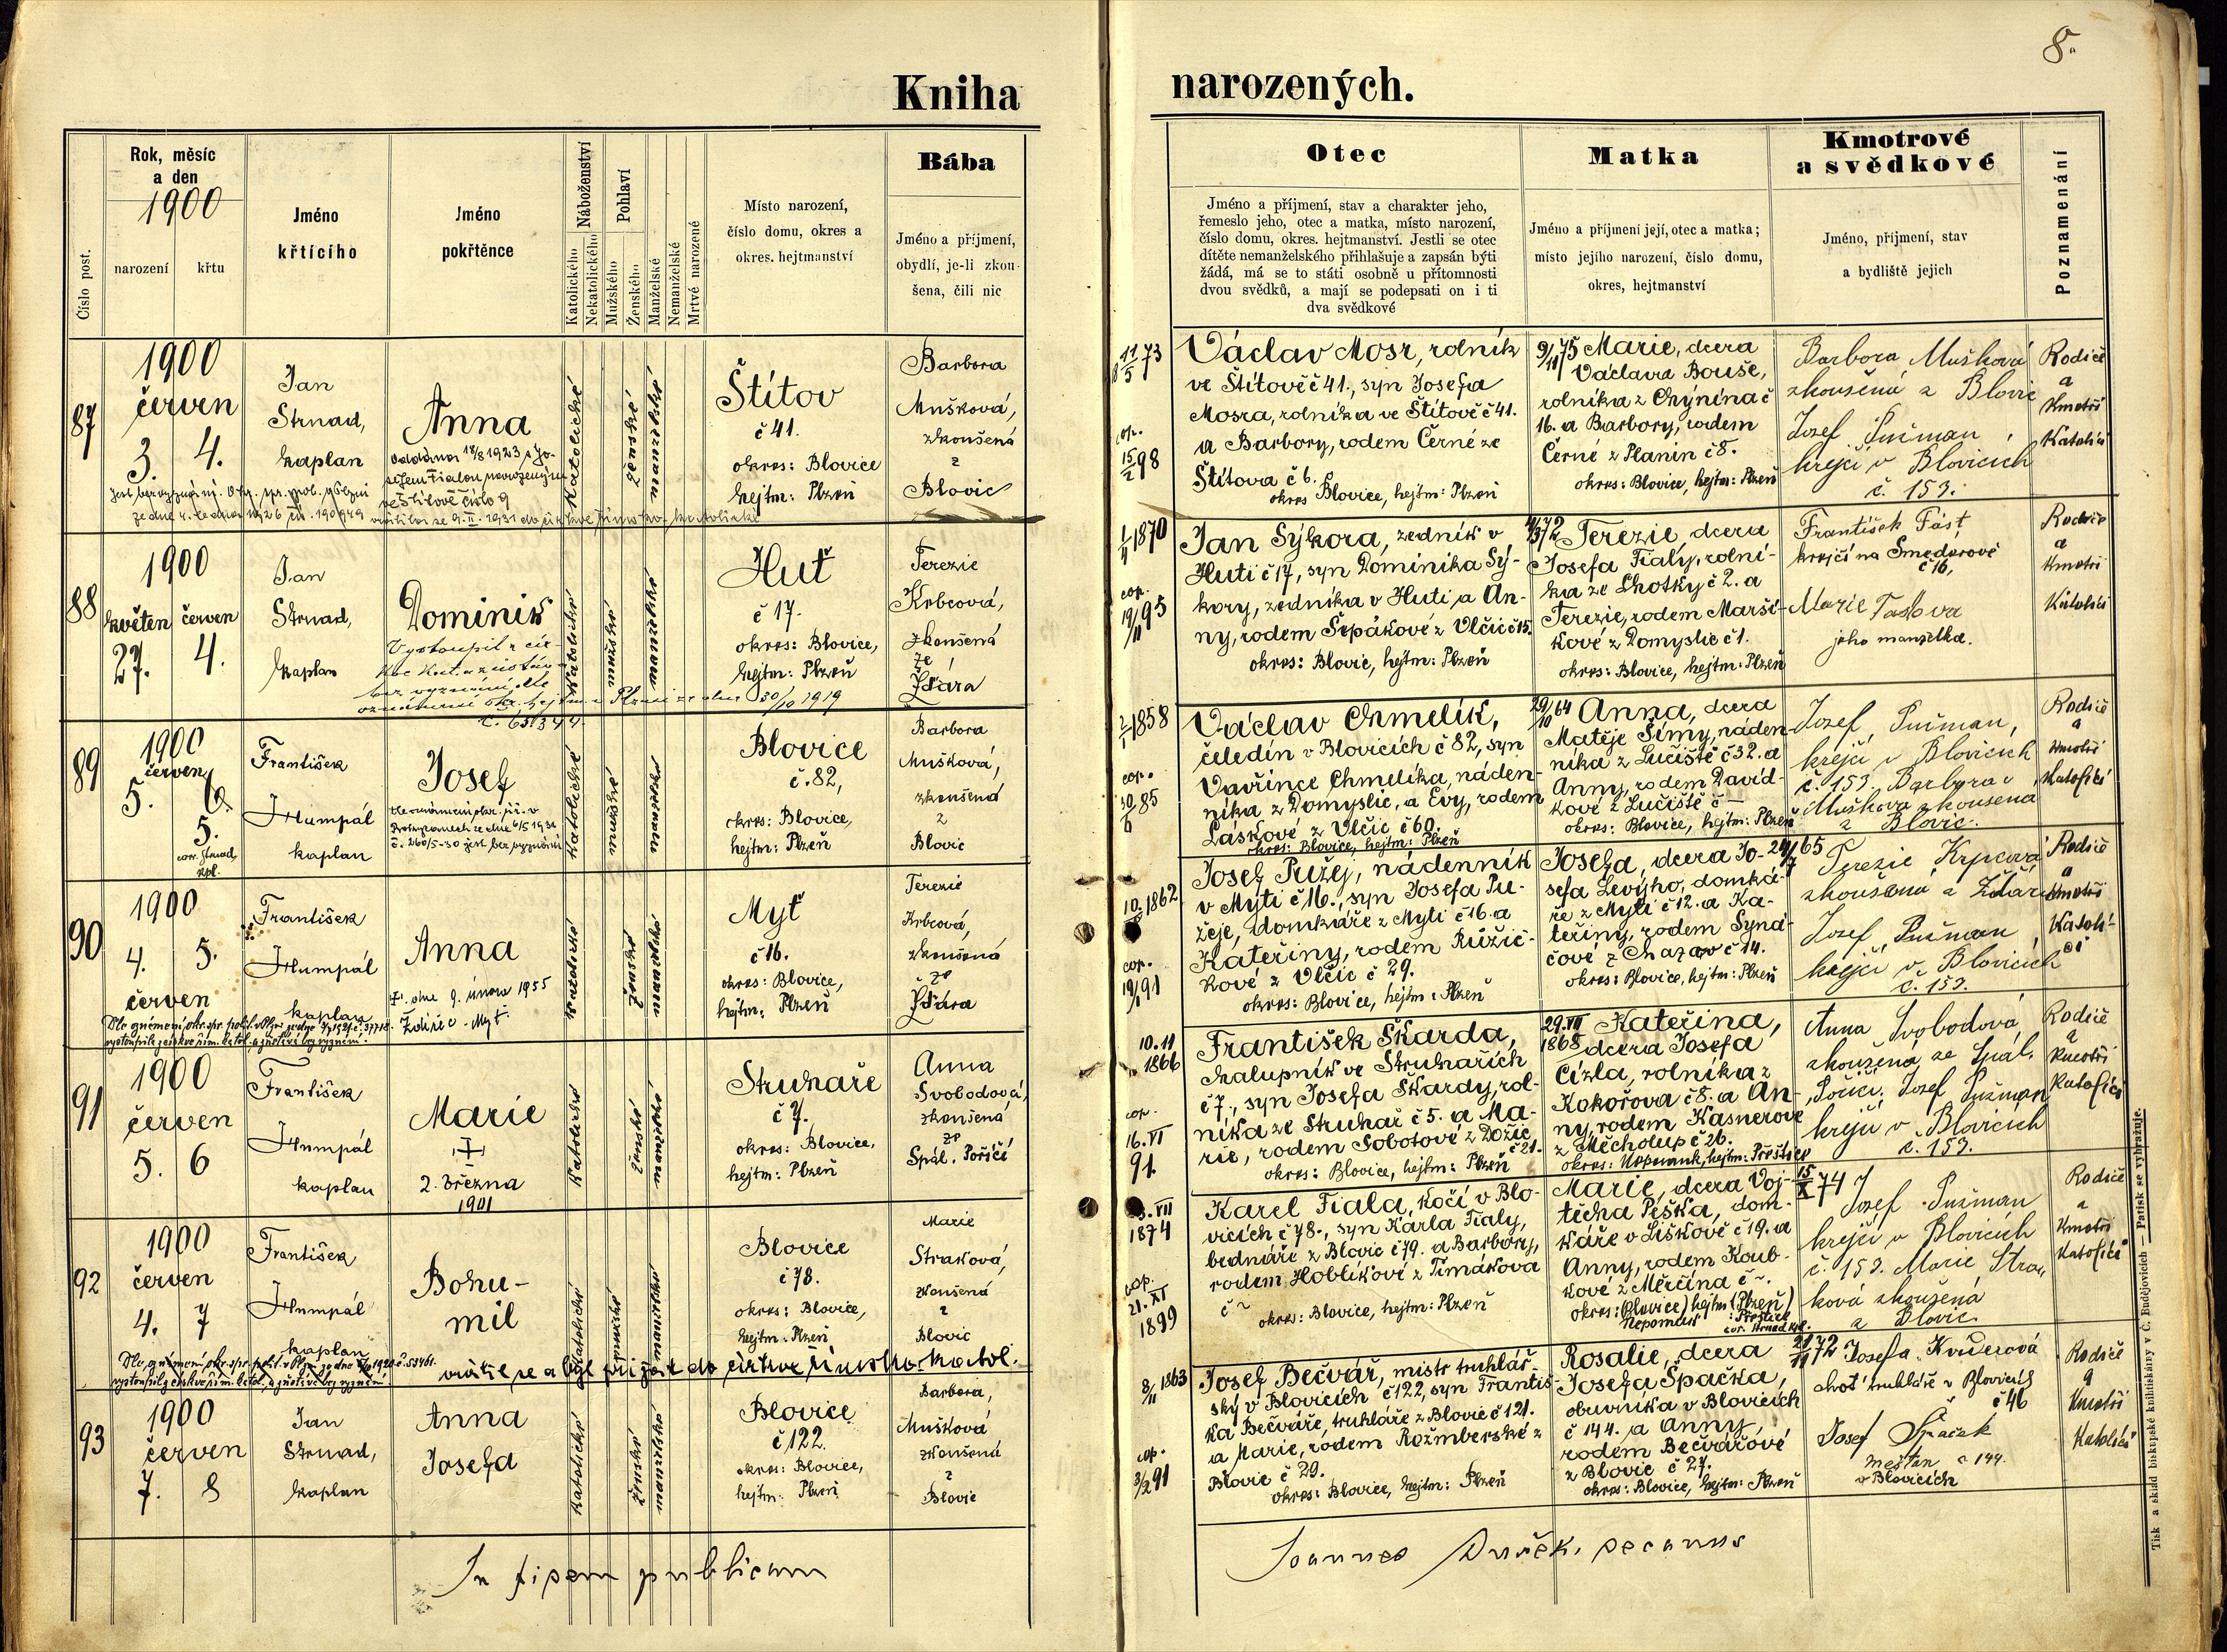 8.
Kniha narozených.
Číslo post.
Rok, měsíc
a den
1900
narození
křtu
Jméno
křtícího
Jméno
pokřtěnce
Náboženství
Katolického
Nekatolického
Pohlaví
Mužského
Ženského
Manželské
Nemanželské
Mrtvě narozené
Místo narození,
číslo domu, okres a
okres. hejtmanství
Bába
Jméno a příjmení,
obydlí, je-li zkou-
šena, čili nic
Otec
Jméno a příjmení, stav a charakter jeho,
řemeslo jeho, otec a matka, místo narození,
číslo domu, okres. hejtmanství. Jestli se otec
dítěte nemanželského přihlašuje a zapsán býti
žádá, má se to státi osobně u přítomnosti
dvou svědků, a mají se podepsati on i ti
dva svědkové
Matka
Jméno a příjmení její, otec a matka;
místo jejího narození, číslo domu,
okres, hejtmanství
Kmotrové
a svědkové
Jméno, příjmení, stav
a bydliště jejich
Poznamenání
87
1900
červen
3. 4.
Jan
Strnad,
kaplan
Anna
Oddána 18/8 1923 s Jo-
sefem Fialou narozeným
ve Štítově číslo 9
ze dne 4. ledna 1926 čís. 190949 vrátila se 9. II. 1931 do církve římsko-katolické
Katolické
ženské
manželské
Štítov
č 41.
okres: Blovice
hejtm: Plzeň
Barbora
Mušková,
zkoušená
z
Blovic
11/5 73
cop.
15/2 98
Václav Mosr, rolník
ve Štítově č 41., syn Josefa
Mosra, rolníka ve Štítově č 41.
a Barbory, rodem Černé ze
Štítova č 6.
okres Blovice, hejtm: Plzeň
9/11 75 Marie, dcera
Václava Bouše,
rolníka z Chýnína č
16. a Barbory, rodem
Černé z Planin č 8.
okres: Blovice, hejtm: Plzeň
Barbora Mušková
zkoušená z Blovic
Josef Sušman,
krejčí v Blovicích
č. 153.
Rodiče
a
Kmotři
Katolíci
88
1900
květen červen
27. 4.
Jan
Strnad,
kaplan
Dominik
Vystoupil z cír-
kve kat. a zůstav
bez vyznání, dle
oznámení okr. hejtm. v Plzni ze dne 30/10 1919
č. 65344
Katolické
mužské
manželské
Huť
č 17.
okres: Blovice,
hejtm: Plzeň
Terezie
Krbcová,
zkoušená
ze
Ždára
1/11 1870
cop.
19/11 95
Jan Sýkora, zedník v
Huti č 17, syn Dominika Sý-
kory, zedníka v Huti, a An-
ny, rodem Sepákové z Vlčic č 15.
okres: Blovic, hejtm: Plzeň
4/3 72 Terezie, dcera
Josefa Fialy, rolní-
ka ze Lhotky č 2. a
Terezie, rodem Marší-
kové z Domyslic č 1.
okres: Blovice, hejtm: Plzeň
František Fást
krejčí na Smederově
č 16,
Marie Fastova
jeho manželka.
Rodiče
a
Kmotři
Katolíci
89
1900
červen
5. 6.
5.
corr. Strnad,
kpl.
František
Humpál
kaplan
Josef
č. 260/5-30 jest bez vyznání
Katolické
mužské
manželské
Blovice
č. 82,
okres: Blovice,
hejtm: Plzeň
Barbora
Mušková,
zkoušená
z
Blovic
2/1 1858
cop.
30/6 85
Václav Chmelík,
čeledín v Blovicích č 82, syn
Vavřince Chmelíka, náden-
níka z Domyslic, a Evy, rodem
Laskové z Vlčic č 60.
okres: Blovice, hejtm: Plzeň
29/10 64 Anna, dcera
Matěje Šímy, náden-
níka z Lučiště č 32. a
Anny, rodem David-
kové z Lučiště č –
okres: Blovice, hejtm: Plzeň
Josef Sušman,
krejčí v Blovicích
č. 153. Barbora
Mušková zkoušená
z Blovic.
Rodiče
a
Kmotři
Katolíci
90
1900
4. 5.
červen
František
Humpál
kaplan
Anna
†. dne 9. února 1955
Ždírec - Myť.
vystoupila z církve řím. katol. a zůstává bez vyznání.
Katolické
ženské
manželské
Myť
č 16.
okres: Blovice,
hejtm: Plzeň
Terezie
Krbcová,
zkoušená
ze
Ždára
10. 1862
cop.
19/1 91
Josef Pužej, nádenník
v Myti č 16., syn Josefa Pu-
žeje, domkáře z Myti č 16. a
Kateřiny, rodem Růžič-
kové z Vlčic č 29.
okres: Blovice, hejtm: Plzeň
Josefa, dcera Jo- 65
sefa Levýho, domká-
ře z Myti č 12. a Ka-
teřiny, rodem Syná-
čové z Chazov č 14.
okres: Blovice, hejtm: Plzeň
Terezie Krpcová
zkoušená z Ždáru
Josef Sušman
krejčí v Blovicích
č. 153.
Rodiče
a
Kmotři
Katolí-
ci
91
1900
červen
5. 6
František
Humpál
kaplan
Marie
†
2. března
1901
Katolické
ženské
manželské
Struhaře
č 7.
okres: Blovice,
hejtm: Plzeň
Anna
Svobodová,
zkoušená
ze
Spál. Poříčí
10. 11
1866
cop.
16. VI
91.
František Škarda,
chalupník ve Struhařích
č 7., syn Josefa Škardy, rol-
níka ze Struhař č 5. a Ma-
rie, rodem Sobotové z Dožic
č 21.
okres: Blovice, hejtm: Plzeň
29. VII Kateřina,
1868 dcera Josefa
Cízla, rolníka z
Kokořova č 8. a An-
ny, rodem Kasnerové
z Měcholup č 26.
okres: Nepomuk, hejtm: Přeštice
Anna Svobodová
zkoušená ze Spál.
Poříčí. Josef Sušman
krejčí v Blovicích
č. 153.
Rodiče
a
Kmotři
Katolíci
92
1900
červen
4. 7
František
Humpál
kaplan
Bohu-
mil
vystoupil z církve řím. katol. a zůstává bez vyznání
vrátil se a byl přijat do církve římsko-katol.
Katolické
mužské
manželské
Blovice
č 78.
okres: Blovice,
hejtm: Plzeň
Marie
Straková,
zkoušená
z
Blovic
VII
1874
cop.
21. XI
1899
Karel Fiala, kočí v Blo-
vicích č 78., syn Karla Fialy,
bednáře z Blovic č 79. a Barbory,
rodem Hoblíkové z Timákova
č ~
okres: Blovice, hejtm: Plzeň
Marie, dcera Voj- 15/X 74
těcha Peška, dom-
káře v Liškově č 19. a
Anny, rodem Koub-
kové z Měrčína č ~.
okres: (Blovice) hejtm (Plzeň)
Nepomuk : Přeštice
cor. Strnad kpl.
Josef Sušman
krejčí v Blovicích
č. 153. Marie Stra-
ková zkoušená
z Blovic
Rodiče
a
Kmotři
Katolíci
93
1900
červen
7. 8
Jan
Strnad,
kaplan
Anna
Josefa
Katolické
ženské
manželské
Blovice
č 122.
okres: Blovice,
hejtm: Plzeň
Barbora,
Mušková
zkoušená
z
Blovic
8/11 1863
cop.
3/2 91
Josef Bečvář, mistr truhlář-
ský v Blovicích č 122, syn Františ-
ka Bečváře, truhláře z Blovic č 121.
a Marie, rodem Rožmberské z
Blovic č 29.
okres: Blovice, hejtm: Plzeň
Rosalie, dcera 21/11 72
Josefa Špačka,
obuvníka v Blovicích
č 144. a Anny,
rodem Bečvářové
z Blovic č 27.
okres: Blovice, hejtm: Plzeň
Josefa Kviderová
choť truhláře v Blovicích
č 46
Josef Špaček
měšťan č 144.
v Blovicích
Rodiče
a
Kmotři
Katolíci
In fidem publicam
Joannes Dušek, decanus
Tisk a sklad biskupské knihtiskárny v Č. Budějovicích — Patisk se vyhražuje.